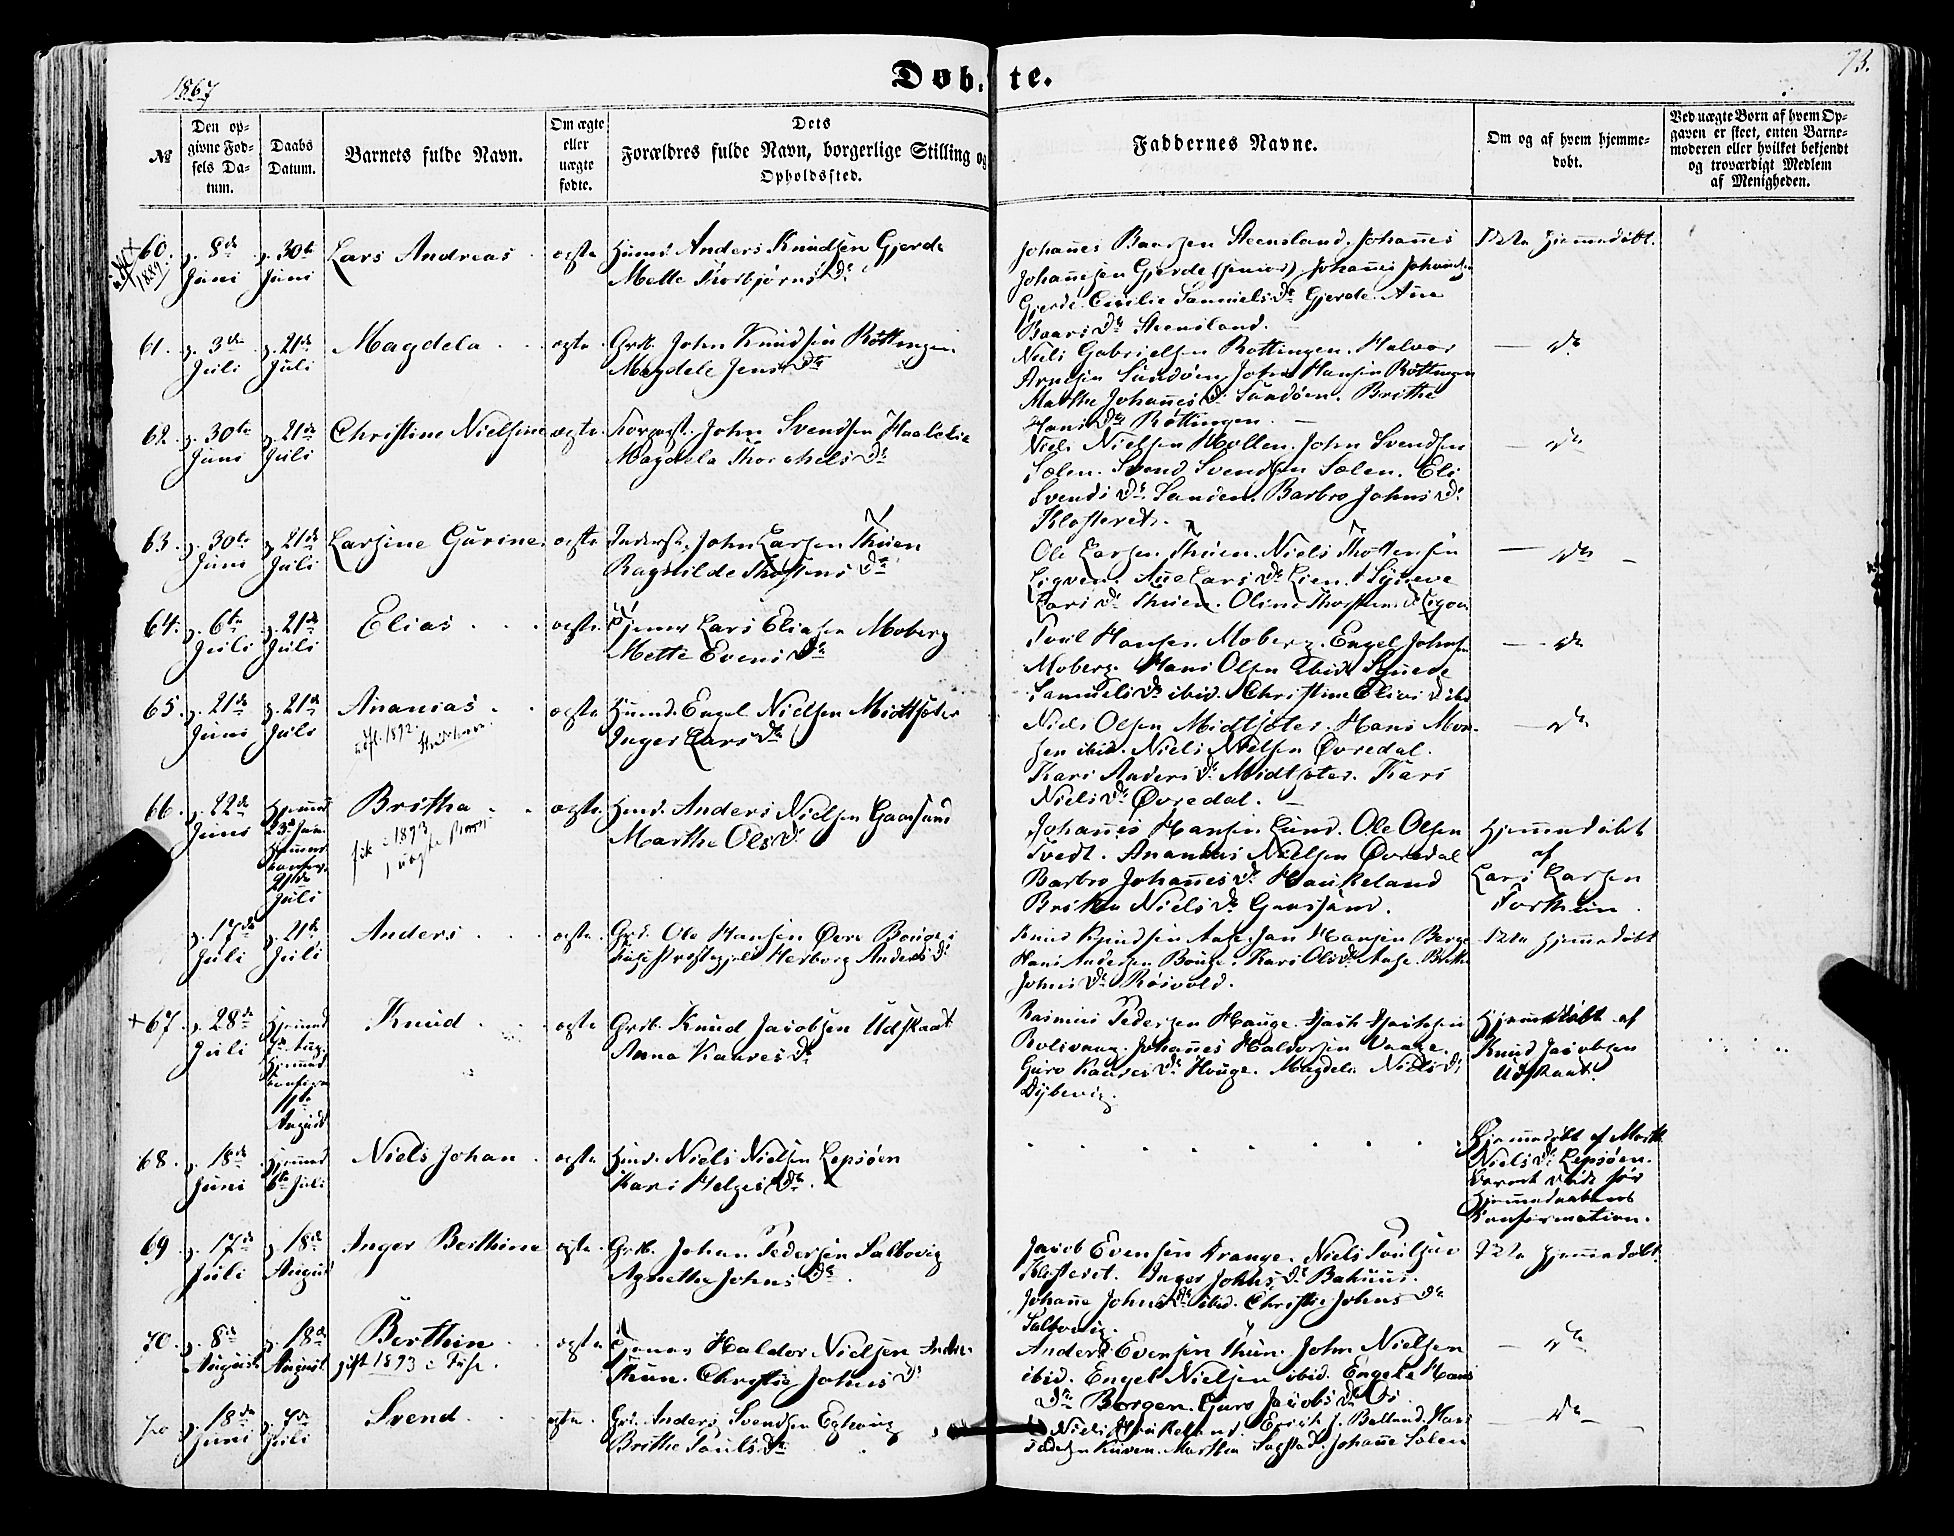 1867
Døbte.
73.
№
Den opgivne Fødsels Datum.
Daabs Datum.
Barnets fulde Navn.
Om ægte eller uægte fødte.
Dets Forældres fulde Navn, borgerlige Stilling og Opholdssted.
Faddernes Navne.
Om og af hvem hjemmedøbt.
Ved uægte Børn af hvem Opgaven er skeet, enten Barnemoderen eller hvilket bekjendt og troværdigt Medlem af Menigheden.
60. 8de Juni 30te Juni Lars Andreas ægte Huusm. Anders Knudsen Gjerde
Mette Thorbjørns Dr
Johannes Baarsen Steensland. Johannes
Johannesen Gjerde (senior) Johannes Johannesen
Gjerde. Cecilie Samuels Dr Gjerde. Ane
Baars Dr Steensland.
Ikke hjemmedøbt.
61. 3die Juli 21de Juli Magdela ægte Grdb. John Knudsen Røttingen
Magdele Jens Dr
Niels Gabrielsen Rottingen. Halvor
Arnesen Sundøen. John Hansen Røttingen
Marthe Johannes Dr Sundøen. Brithe
Hans Dr Røttingen.
Do
62. 30te Juni 21de Juli Christine Nielsine ægte John Svendsen
Magdela Thorchels Dr
Niels Nielsen Hollen. John Svendsen
Sølen. Svend Svendsen Sølen. Eli
Svends Dr Barbro Johns Dr
Klosteret.
Do
63. 30te Juni 21de Juli Larsine Gurine ægte Inderst. John Larsen Thuen
Ragnilde Thostens Dr
Ole Larsen Thuen. Niels Thostensen
Ligven. Ane Lars Dr Lien. Synneve
Lars Dr Thuen. Oline Thostens Dr Ligven
Do
64. 6te Juli 21de Juli Elias ægte Tjener Lars Eliasen Moberg
Mette Evens Dr
Poul Hansen Moberg. Engel Johns
Moberg. Hans Olsen ibid. Synneve
Samuels Dr ibid. Christine Elias Dr ibid
Do
65. 21de Juni 21de Juli Ananias ægte Huusm. Engel Nielsen Midtsæter
Inger Lars Dr
1892.
Niels Olsen Midtsæter. Hans Mon-
sen ibid. Niels Nielsen Øvredal.
Kari Anders Dr Midtsæter. Kari
Niels Dr Øvredal.
Do
66. 22de Juni Hjemmed. 23de Juni 21de Juli Britha ægte Huusm. Anders Nielsen Gaassund
Marthe Ols Dr
fik i 1893 1 uægte Barn
Johannes Hansen Lund. Ole Olsen
Tvedt. Ananias Nielsen Øvredal
Barbro Johannes Dr Haukeland
Britha Niels Dr Gaassund.
Hjemmedøbt
af
Lars Larsen
17de Juli 21de Juli Anders ægte Grb. Ole Hansen Øvre Bouge
Herborg Anders Dr
Knud Knudsen Aase. Jan Hansen Berge
Hans Andersen Bouge. Kari Ols Dr Aase. Brithe
Johns Dr Røsvold.
Ikke hjemmedøbt
67. 28de Juli Hjemmed. August Knud ægte Grdb. Knud Jacobsen Udskaat
Anna Kaares Dr
Rasmus Pedersen Hauge.
Johannes Haldorsen Vaage.
Guro Kaares Dr Houge. Magdela Niels Dr
Dybevig.
Hjemmedøbt af
Knud Jacobsen
Udskaat.
68. 18de Juni Hjemmed. 6te Juli Niels Johan ægte Huusm. Niels Nielsen Lepsøen
Kari Helges Dr
Hjemmedøbt af Marthe
Niels Dr Lepsøen.
Barnet døde før
Hjemmedaabens
Konfirmation.
69. 17de Juli 18de August Inger Berthine ægte Grdb. Johan Pedersen Salbovig
Agnethe Johns Dr
Jacob Evensen Drange. Niels Poulsen
Klosteret. Inger Johns Dr Bahuus.
Johanne Johns Dr ibid. Christie Johns Dr
Salbovig.
Ikke hjemmedøbt
70. 8de August 18de August Berthin ægte Tjener Haldor Nielsen Indre-
Thuen. Christie Johns Dr
gift 1893 i Fuse.
Anders Evensen Thuen. John Nielsen
ibid. Engel Nielsen ibid. Engele Hans
Dr Borgen. Guro Jacobs Dr Os
Do
70 18de Juni 7de Juli Svend ægte Grb. Anders Svendsen
Brithe Pouls Dr
Niels Haukeland. Erick J. Balland. Hans
Marthea Søfteland. Johanne Sølen
Do